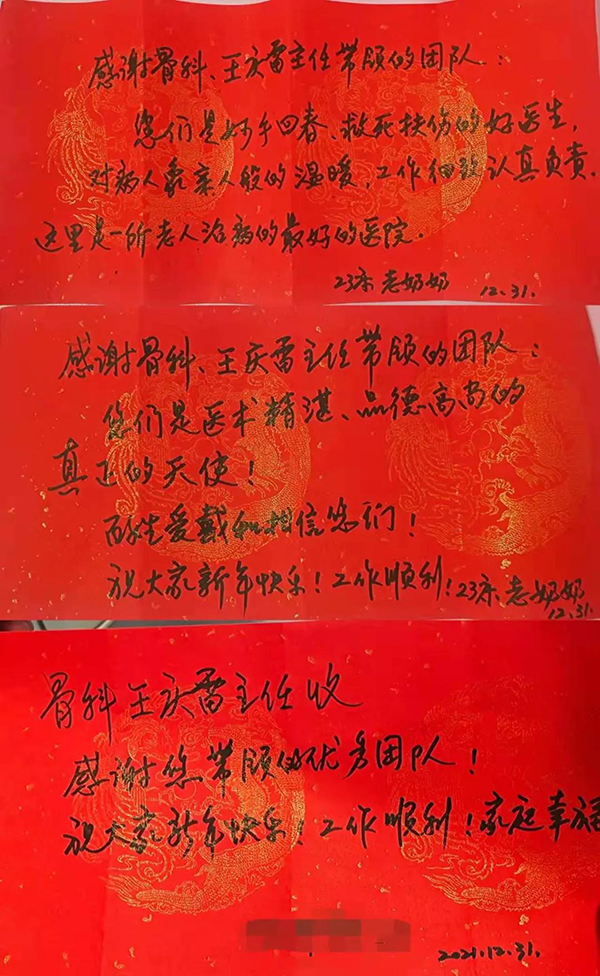 感谢骨科、王庆雷主任带领的团队：
您们是妙手回春、救死扶伤的好医生，
对病人象亲人般的温暖，工作细致认真负责。
这里是一所老人治病的最好的医院。
23床 老奶奶 12.31.
感谢骨科、王庆雷主任带领的团队：
您们是医术精湛、品德高尚的
真正的天使！
爱戴和相信您们！
祝大家新年快乐！工作顺利！23床 老奶奶
12.31.
骨科王庆雷主任收
感谢您带领的优秀团队！
祝大家新年快乐！工作顺利！家庭幸福
2021.12.31.